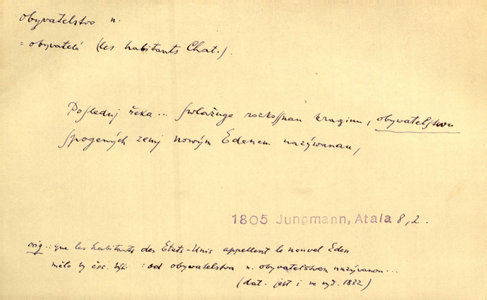 obyvatelstvo n.
= obyvatelé (les habitants Chat.).
Poslednj řeka... swlažuge rozkossnau kraginu, obywatelstwu
spogených zemj nowým Edenem nazýwanau,
1805 Jungmann, Atala 8,2.
orig.: que les habitants des États-Unis appellent le nouvel Eden
mělo by být : od obywatelstva n. obywatelstvem nazývanou...
(dat. jest i m vyd. 1832)